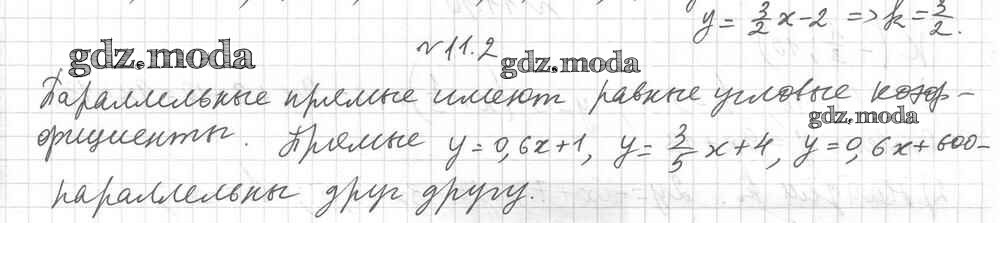 y = 3/2 x - 2 => k = 3/2.
gdz.moda
№11.2
gdz.moda
Параллельные прямые имеют равные угловые коэф-
gdz.moda
фициенты. Прямые y = 0,6x + 1, y = 3/5 x + 4, y = 0,6x + 600 -
параллельны друг другу.